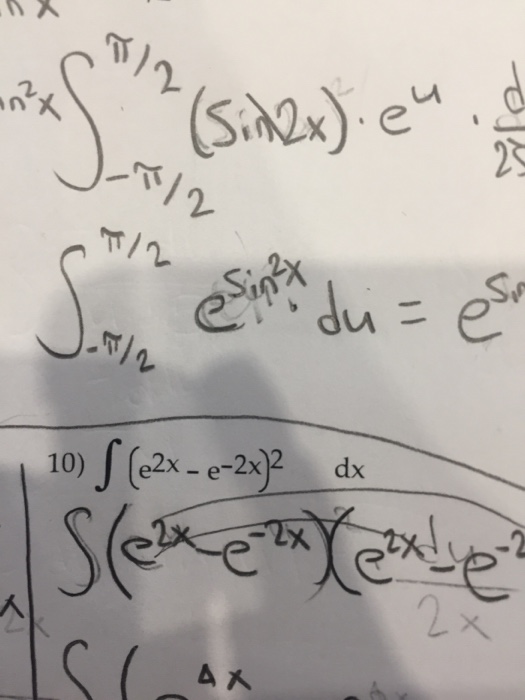 n x
in²x ∫_{-π/2}^{π/2} (Sin2x) · e^u · d
∫_{-π/2}^{π/2} e^{Sin²x} du = e^{Sin
10) ∫ (e2x – e–2x)2 dx
∫(e^{2x} – e^{-2x})(e^{2x} – e^{-2
2x
∫(e^{4x}